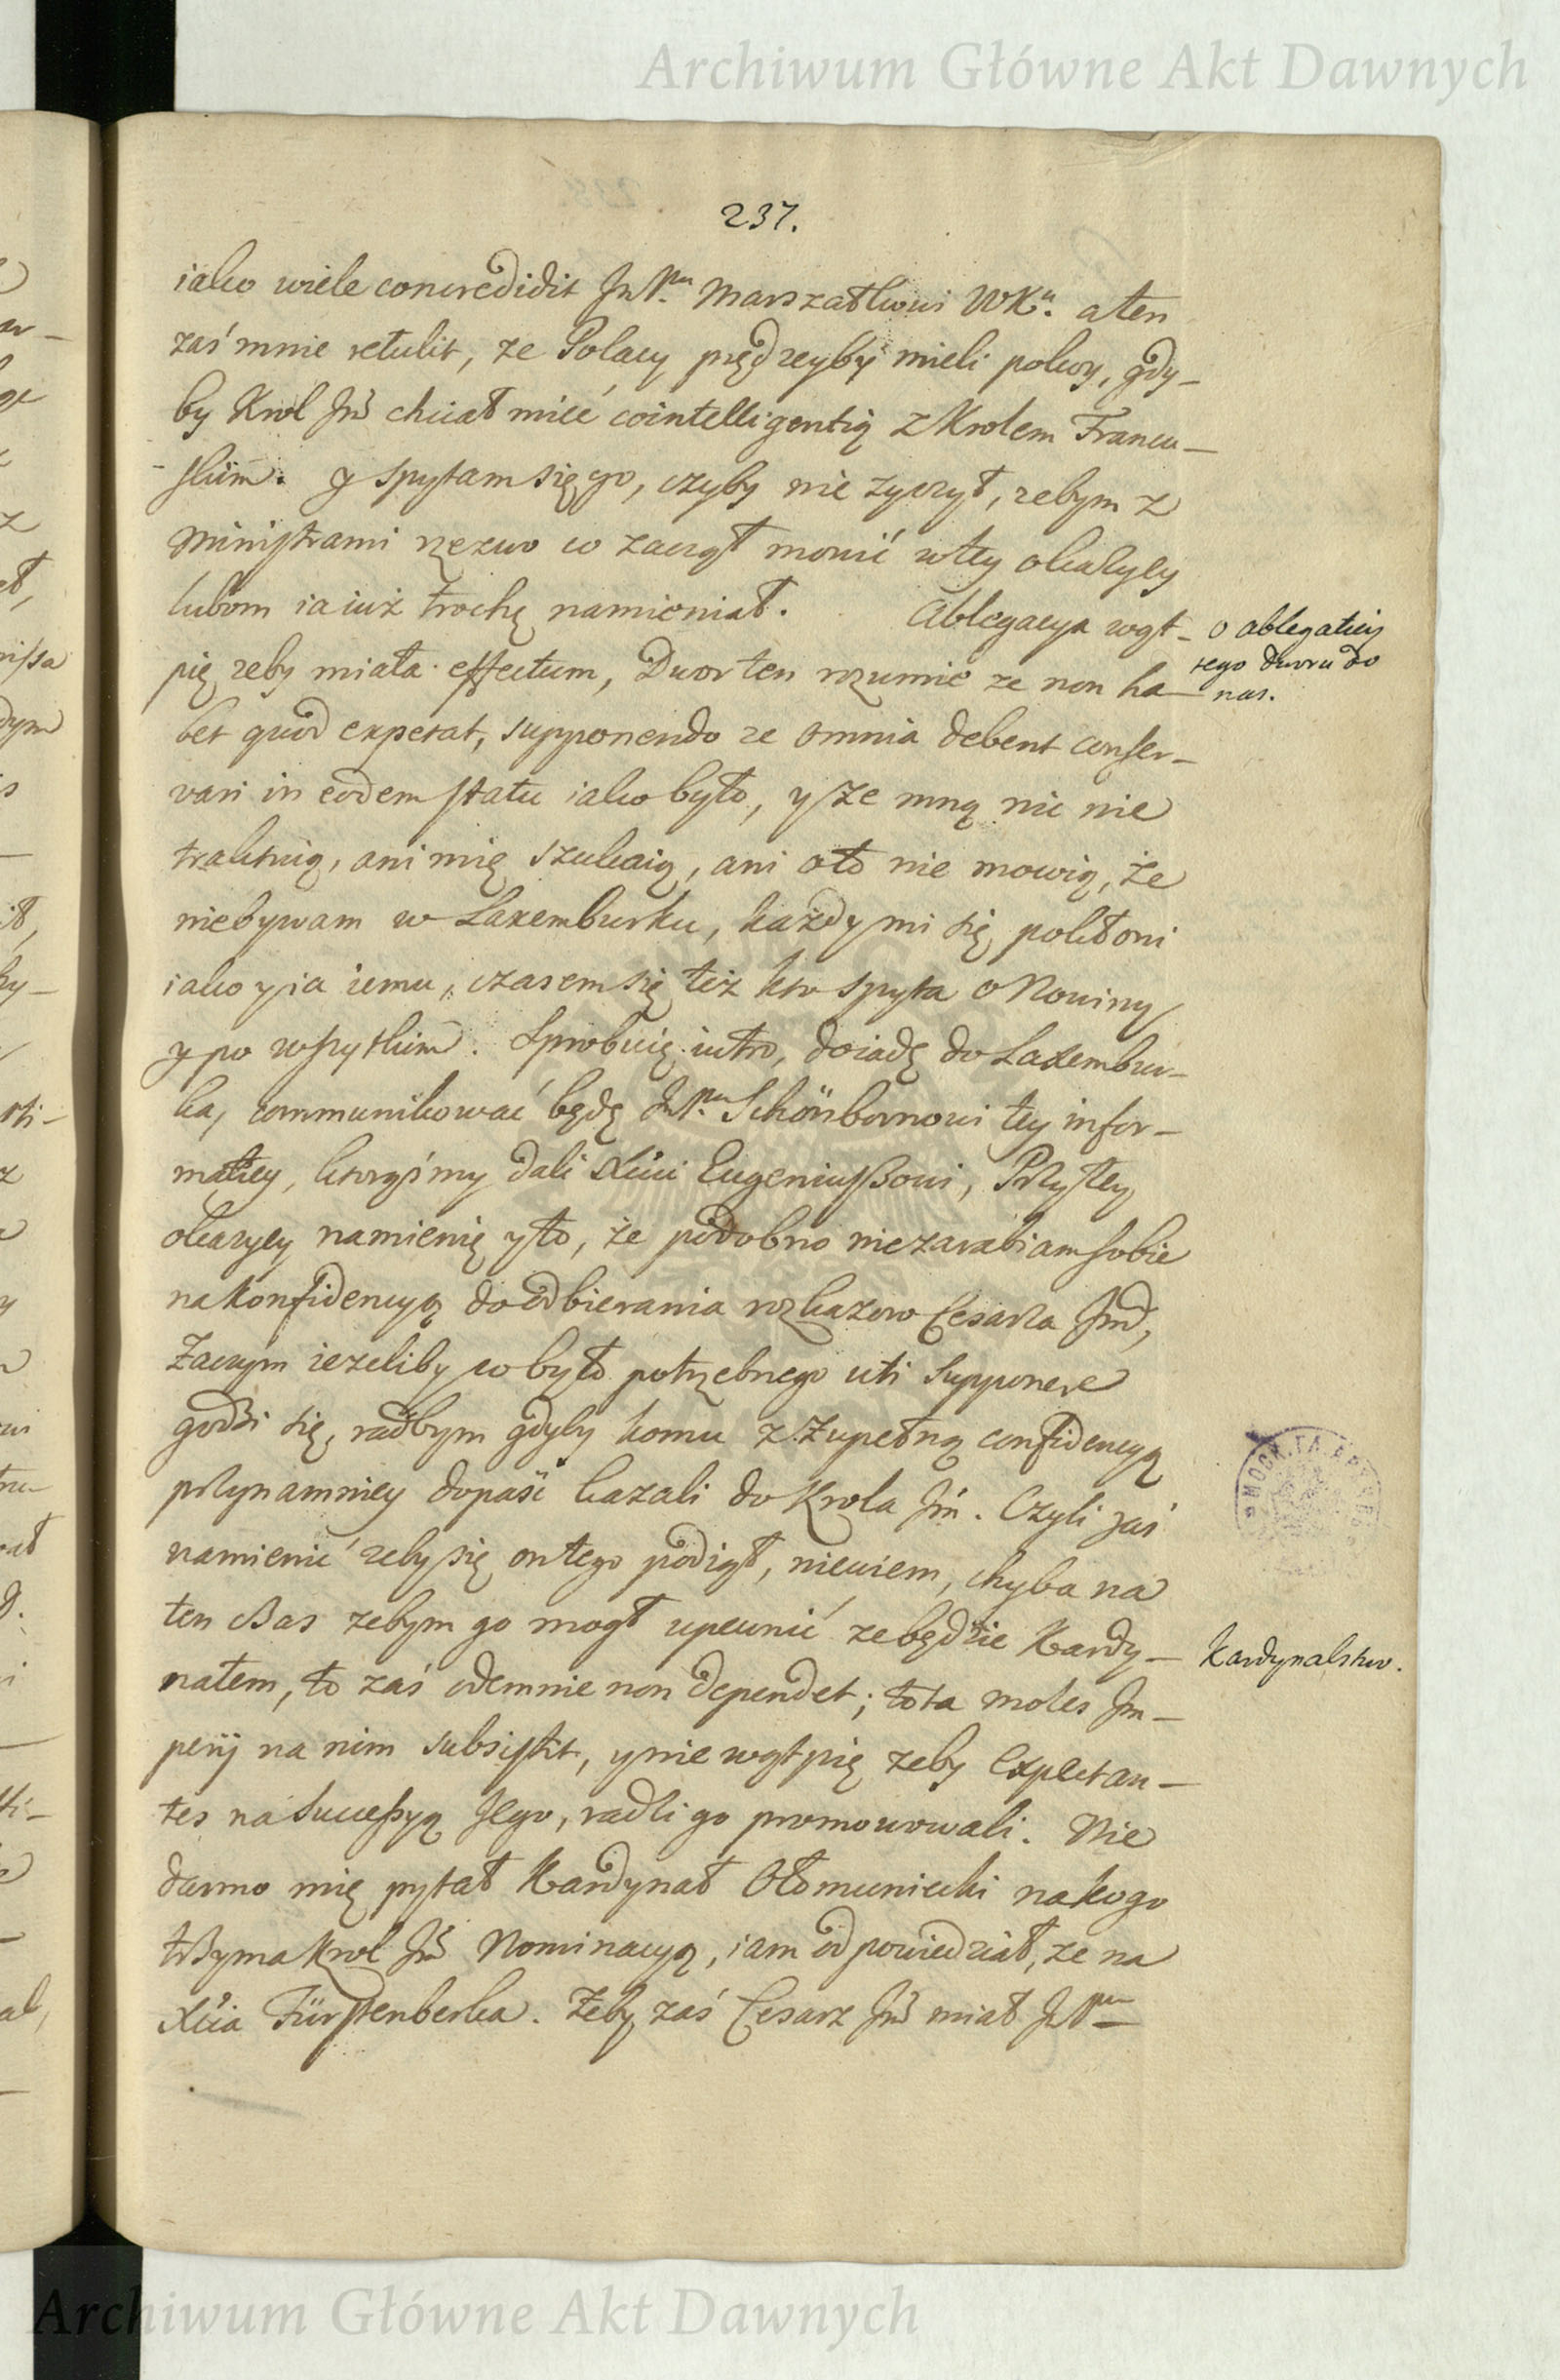 Archiwum Główne Akt Dawnych
237.
iako wiele concredidit JmPn. Marszałkowi WKn. a ten
zaś mnie retulit, ze Polacy prędzeyby mieli pokoy, gdy-
by Krol Jmć chciał mieć cointelligentią z Krolem Francu-
skim. y spytam się go, czyby nie zyczył, zebym z
Ministrami rzezwo co zaczął mowić w tey okazyey
lubom ia iuż trochę namieniał. Ablegacya wąt-
o ablegatiey
tego dworu do
nas.
pię zeby miała effectum, Dwor ten rozumie ze non ha-
bet quod expetat, supponendo ze omnia debent conser-
vari in eodem statu iako było, y ze mną nic nie
traktuią, ani mię szukaią, ani oto nie mowią, że
niebywam w Laxemburku, każdy mi się pokłoni
iako y ia iemu, czasem się też kto spyta o Nowiny
y po wszytkim. Sprobuię iutro, doiadę do Laxembur-
ka, communikować będę JmPnu Schönbornowi tey infor-
matiey, ktorąśmy dali Xciu Eugeniuszowi, Przy tey
okazyey namienię y to, że podobno niezarabiam sobie
na konfidencyą do odbierania rozkazow Cesarza Jmci,
Zaczym iezeliby co było potrzebnego uti supponere
godzi się, radbym gdyby komu z zupełną confidencyą
przynamniey dopaść kazali do Krola Jmć. Czyli zaś
namienić zeby się on tego podiął, niewiem, chyba na
ten czas zebym go mogł upewnić ze będzie Kardy-
Kardynalstwo.
nałem, to zaś odemnie non dependet; tota moles Im-
perij na nim subsistit, y nie wątpię zeby Expectan-
tes na Successyą Jego, radzi go promowowali. Nie
darmo mię pytał Kardynał Ołomuniecki na kogo
trzyma Krol Jmć Nominacyą, iam odpowiedział, ze na
Xcia Fürstenberka. Zeby zaś Cesarz Jmć miał JmPnu
Archiwum Główne Akt Dawnych